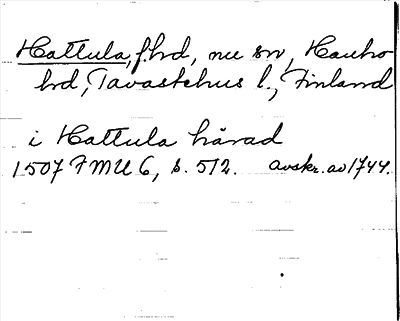 Hattula, f. hd, nu sn, Hauho
hd, Tavastehus l., Finland
i Hattula härad
1507 FMU 6, s. 512. avskr. av 1744.